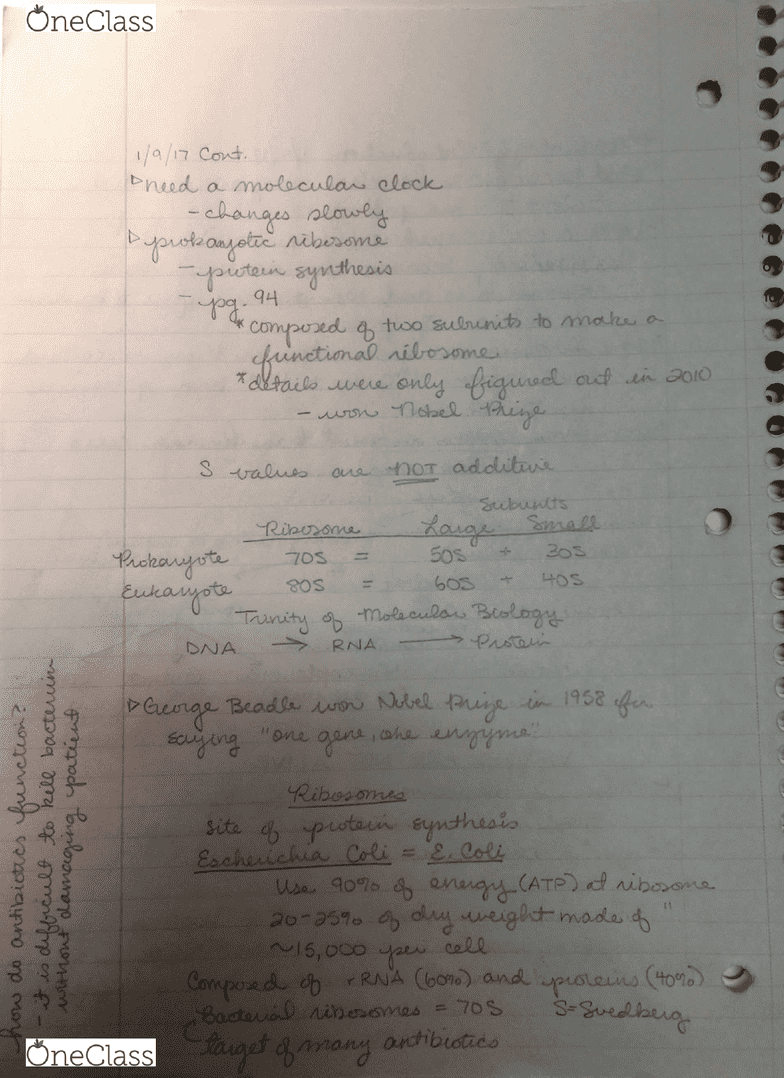 OneClass
1/9/17 Cont.
▷need a molecular clock
- changes slowly
▷prokaryotic ribosome
- protein synthesis
- pg. 94
*composed of two subunits to make a
functional ribosome
*details were only figured out in 2010
- won Nobel Prize
S values are NOT additive
Subunits
Ribosome Large Small
Prokaryote 70S = 50S + 30S
Eukaryote 80S = 60S + 40S
Trinity of Molecular Biology
DNA → RNA → Protein
▷George Beadle won Nobel Prize in 1958 for
saying "one gene, one enzyme"
Ribosomes
Site of protein synthesis
Escherichia Coli = E. Coli
Use 90% of energy (ATP) at ribosome
20-25% of dry weight made of "
~15,000 per cell
Composed of rRNA (60%) and proteins (40%)
Bacterial ribosomes = 70S S=Svedberg
target of many antibiotics
how do antibiotics function?
- it is difficult to kill bacterium
without damaging patient
OneClass